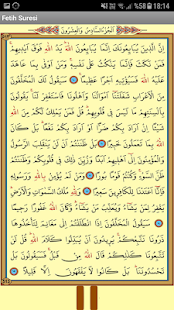 %58 18:14
Fetih Suresi
اَلْجُزْءُ السَّادِسُ وَالْعِشْرُونَ
اِنَّ الَّذِينَ يُبَايِعُونَكَ اِنَّمَا يُبَايِعُونَ اللّٰهَ يَدُ اللّٰهِ فَوْقَ اَيْدِيهِمْ
فَمَنْ نَكَثَ فَاِنَّمَا يَنْكُثُ عَلٰى نَفْسِهِ وَمَنْ اَوْفٰى بِمَا عَاهَدَ عَلَيْهُ
اللّٰهَ فَسَيُؤْتِيهِ اَجْرًا عَظِيمًا سَيَقُولُ لَكَ الْمُخَلَّفُونَ
مِنَ الْاَعْرَابِ شَغَلَتْنَا اَمْوَالُنَا وَاَهْلُونَا فَاسْتَغْفِرْ لَنَا يَقُولُونَ
بِاَلْسِنَتِهِمْ مَا لَيْسَ فِي قُلُوبِهِمْ قُلْ فَمَنْ يَمْلِكُ لَكُمْ مِنَ اللّٰهِ
شَيْئًا اِنْ اَرَادَ بِكُمْ ضَرًّا اَوْ اَرَادَ بِكُمْ نَفْعًا بَلْ كَانَ اللّٰهُ
بِمَا تَعْمَلُونَ خَبِيرًا بَلْ ظَنَنْتُمْ اَنْ لَنْ يَنْقَلِبَ الرَّسُولُ
وَالْمُؤْمِنُونَ اِلٰى اَهْلِيهِمْ اَبَدًا وَزُيِّنَ ذٰلِكَ فِي قُلُوبِكُمْ وَظَنَنْتُمْ
ظَنَّ السَّوْءِ وَكُنْتُمْ قَوْمًا بُورًا وَمَنْ لَمْ يُؤْمِنْ بِاللّٰهِ وَرَسُولِهِ
فَاِنَّا اَعْتَدْنَا لِلْكَافِرِينَ سَعِيرًا وَلِلّٰهِ مُلْكُ السَّمٰوَاتِ وَالْاَرْضِ
يَغْفِرُ لِمَنْ يَشَاءُ وَيُعَذِّبُ مَنْ يَشَاءُ وَكَانَ اللّٰهُ غَفُورًا رَحِيمًا
سَيَقُولُ الْمُخَلَّفُونَ اِذَا انْطَلَقْتُمْ اِلٰى مَغَانِمَ لِتَأْخُذُوهَا
ذَرُونَا نَتَّبِعْكُمْ يُرِيدُونَ اَنْ يُبَدِّلُوا كَلَامَ اللّٰهِ قُلْ لَنْ
تَتَّبِعُونَا كَذٰلِكُمْ قَالَ اللّٰهُ مِنْ قَبْلُ فَسَيَقُولُونَ بَلْ
تَحْسُدُونَنَا بَلْ كَانُوا لَا يَفْقَهُونَ اِلَّا قَلِيلًا